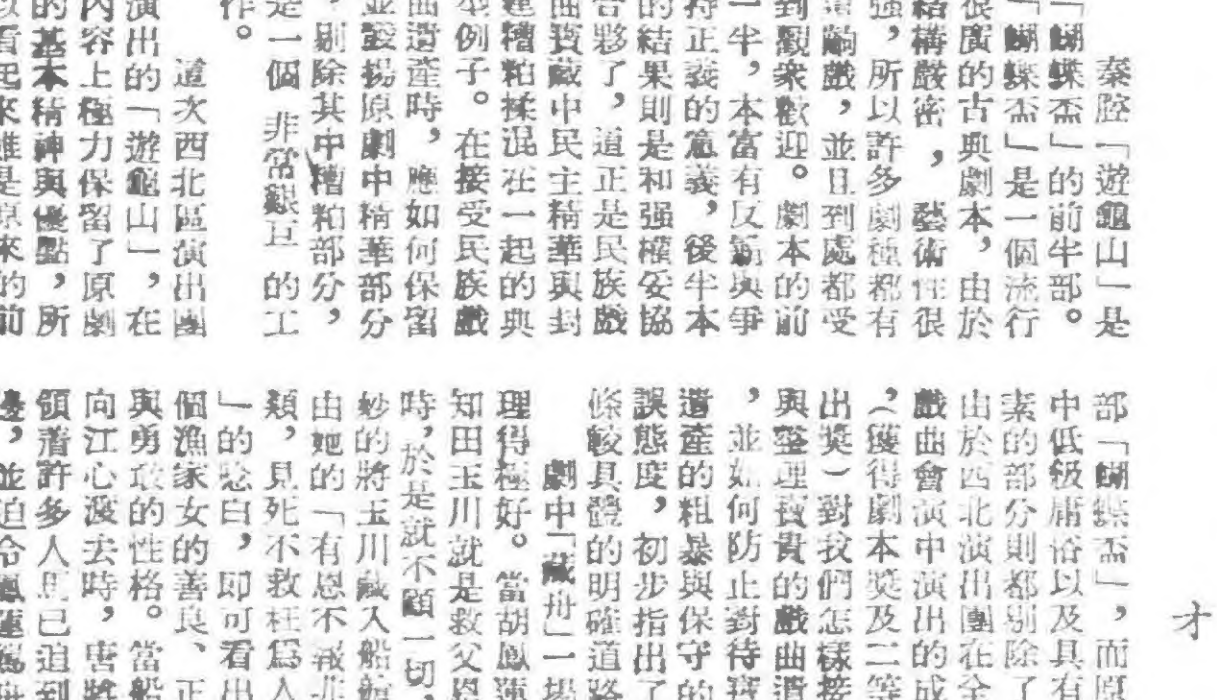 秦腔「遊龜山」是
「蝴蝶盃」的前半部。
「蝴蝶盃」是一個流行
很廣的古典劇本，由於
結構嚴密，藝術性很
强，所以許多劇種都有
這齣戲，並且到處都受
到觀衆歡迎。劇本的前
一半，本富有反霸與爭
持正義的意義，後半本
的結果則是和强權妥協
合夥了，這正是民族戲
曲寶藏中民主精華與封
建糟粕揉混在一起的典
型例子。在接受民族戲
曲遺產時，應如何保留
並發揚原劇中精華部分
，剔除其中糟粕部分，
是一個非常艱巨的工
作。
這次西北區演出團
演出的「遊龜山」，在
內容上極力保留了原劇
的基本精神與優點，所
以看起來雖是原來的前
部「蝴蝶盃」，而原
中低級庸俗以及具有
素的部分則都剔除了
由於西北演出團在全
戲曲會演中演出的成
，（獲得劇本獎及二等
出獎）對我們怎樣接
與整理寶貴的戲曲遺
，並如何防止對待寶
遺產的粗暴與保守的
誤態度，初步指出了
條較具體的明確道路
劇中「藏舟」一場
理得極好。當胡鳳蓮
知田玉川就是救父恩
時，於是就不顧一切，
妙的將玉川藏入船艙
由她的「有恩不報非
類，見死不救枉爲人
」的唸白，即可看出
個漁家女的善良、正
與勇敢的性格。當船
向江心渡去時，唐將
領着許多人馬已追到
邊，並迫令鳳蓮
才